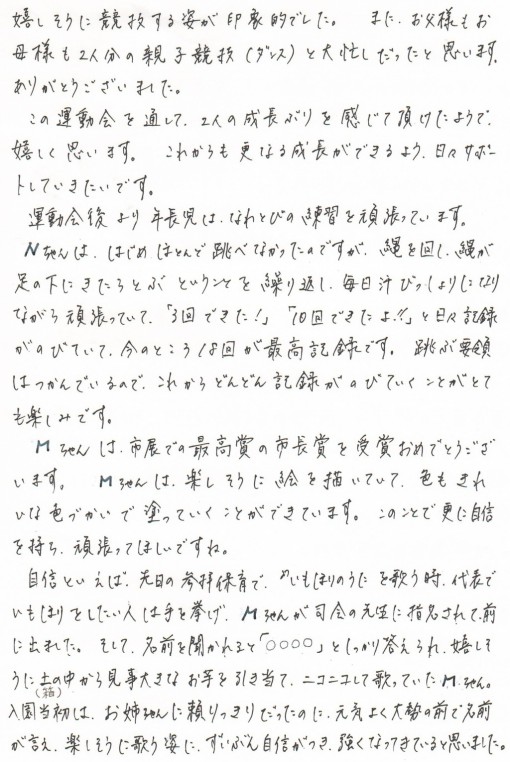 嬉しそうに競技する姿が印象的でした。 また、お父様もお
母様も2人分の親子競技(ダンス)と大忙しだったと思います。
ありがとうございました。
この運動会を通して、2人の成長ぶりを感じて頂けたようで、
嬉しく思います。 これからも更なる成長ができるよう、日々サポー
トしていきたいです。
運動会後より年長児は、なわとびの練習を頑張っています。
Nちゃんは、はじめほとんど跳べなかったのですが、縄を回し、縄が
足の下にきたらとぶということを繰り返し、毎日汗びっしょりになり
ながら頑張っていて、「3回できた!」「10回できたよ!!」と日々記録
がのびていて、今のところ18回が最高記録です。 跳ぶ要領
はつかんでいるので、これからどんどん記録がのびていくことがとて
も楽しみです。
Mちゃんは、市展での最高賞の市長賞を受賞おめでとうござ
います。 Mちゃんは、楽しそうに絵を描いていて、色もきれ
いな色づかいで塗っていくことができています。 このことで更に自信
を持ち、頑張ってほしいですね。
自信といえば、先日の参拝保育で、“いもほりのうた”を歌う時、代表で
いもほりをしたい人は手を挙げ、Mちゃんが司会の先生に指名されて、前
に出ました。 そして、名前を聞かれると「○○○○」としっかり答えられ、嬉しそ
うに土の中から見事大きなお芋を引き当て、ニコニコして歌っていたMちゃん。
(箱)
入園当初は、お姉ちゃんに頼りっきりだったのに、元気よく大勢の前で名前
が言え、楽しそうに歌う姿に、ずいぶん自信がつき、強くなってきていると思いました。